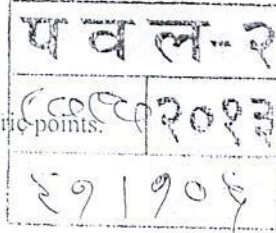 प व ल-- २
ric points. २०१३
६१ | १०६